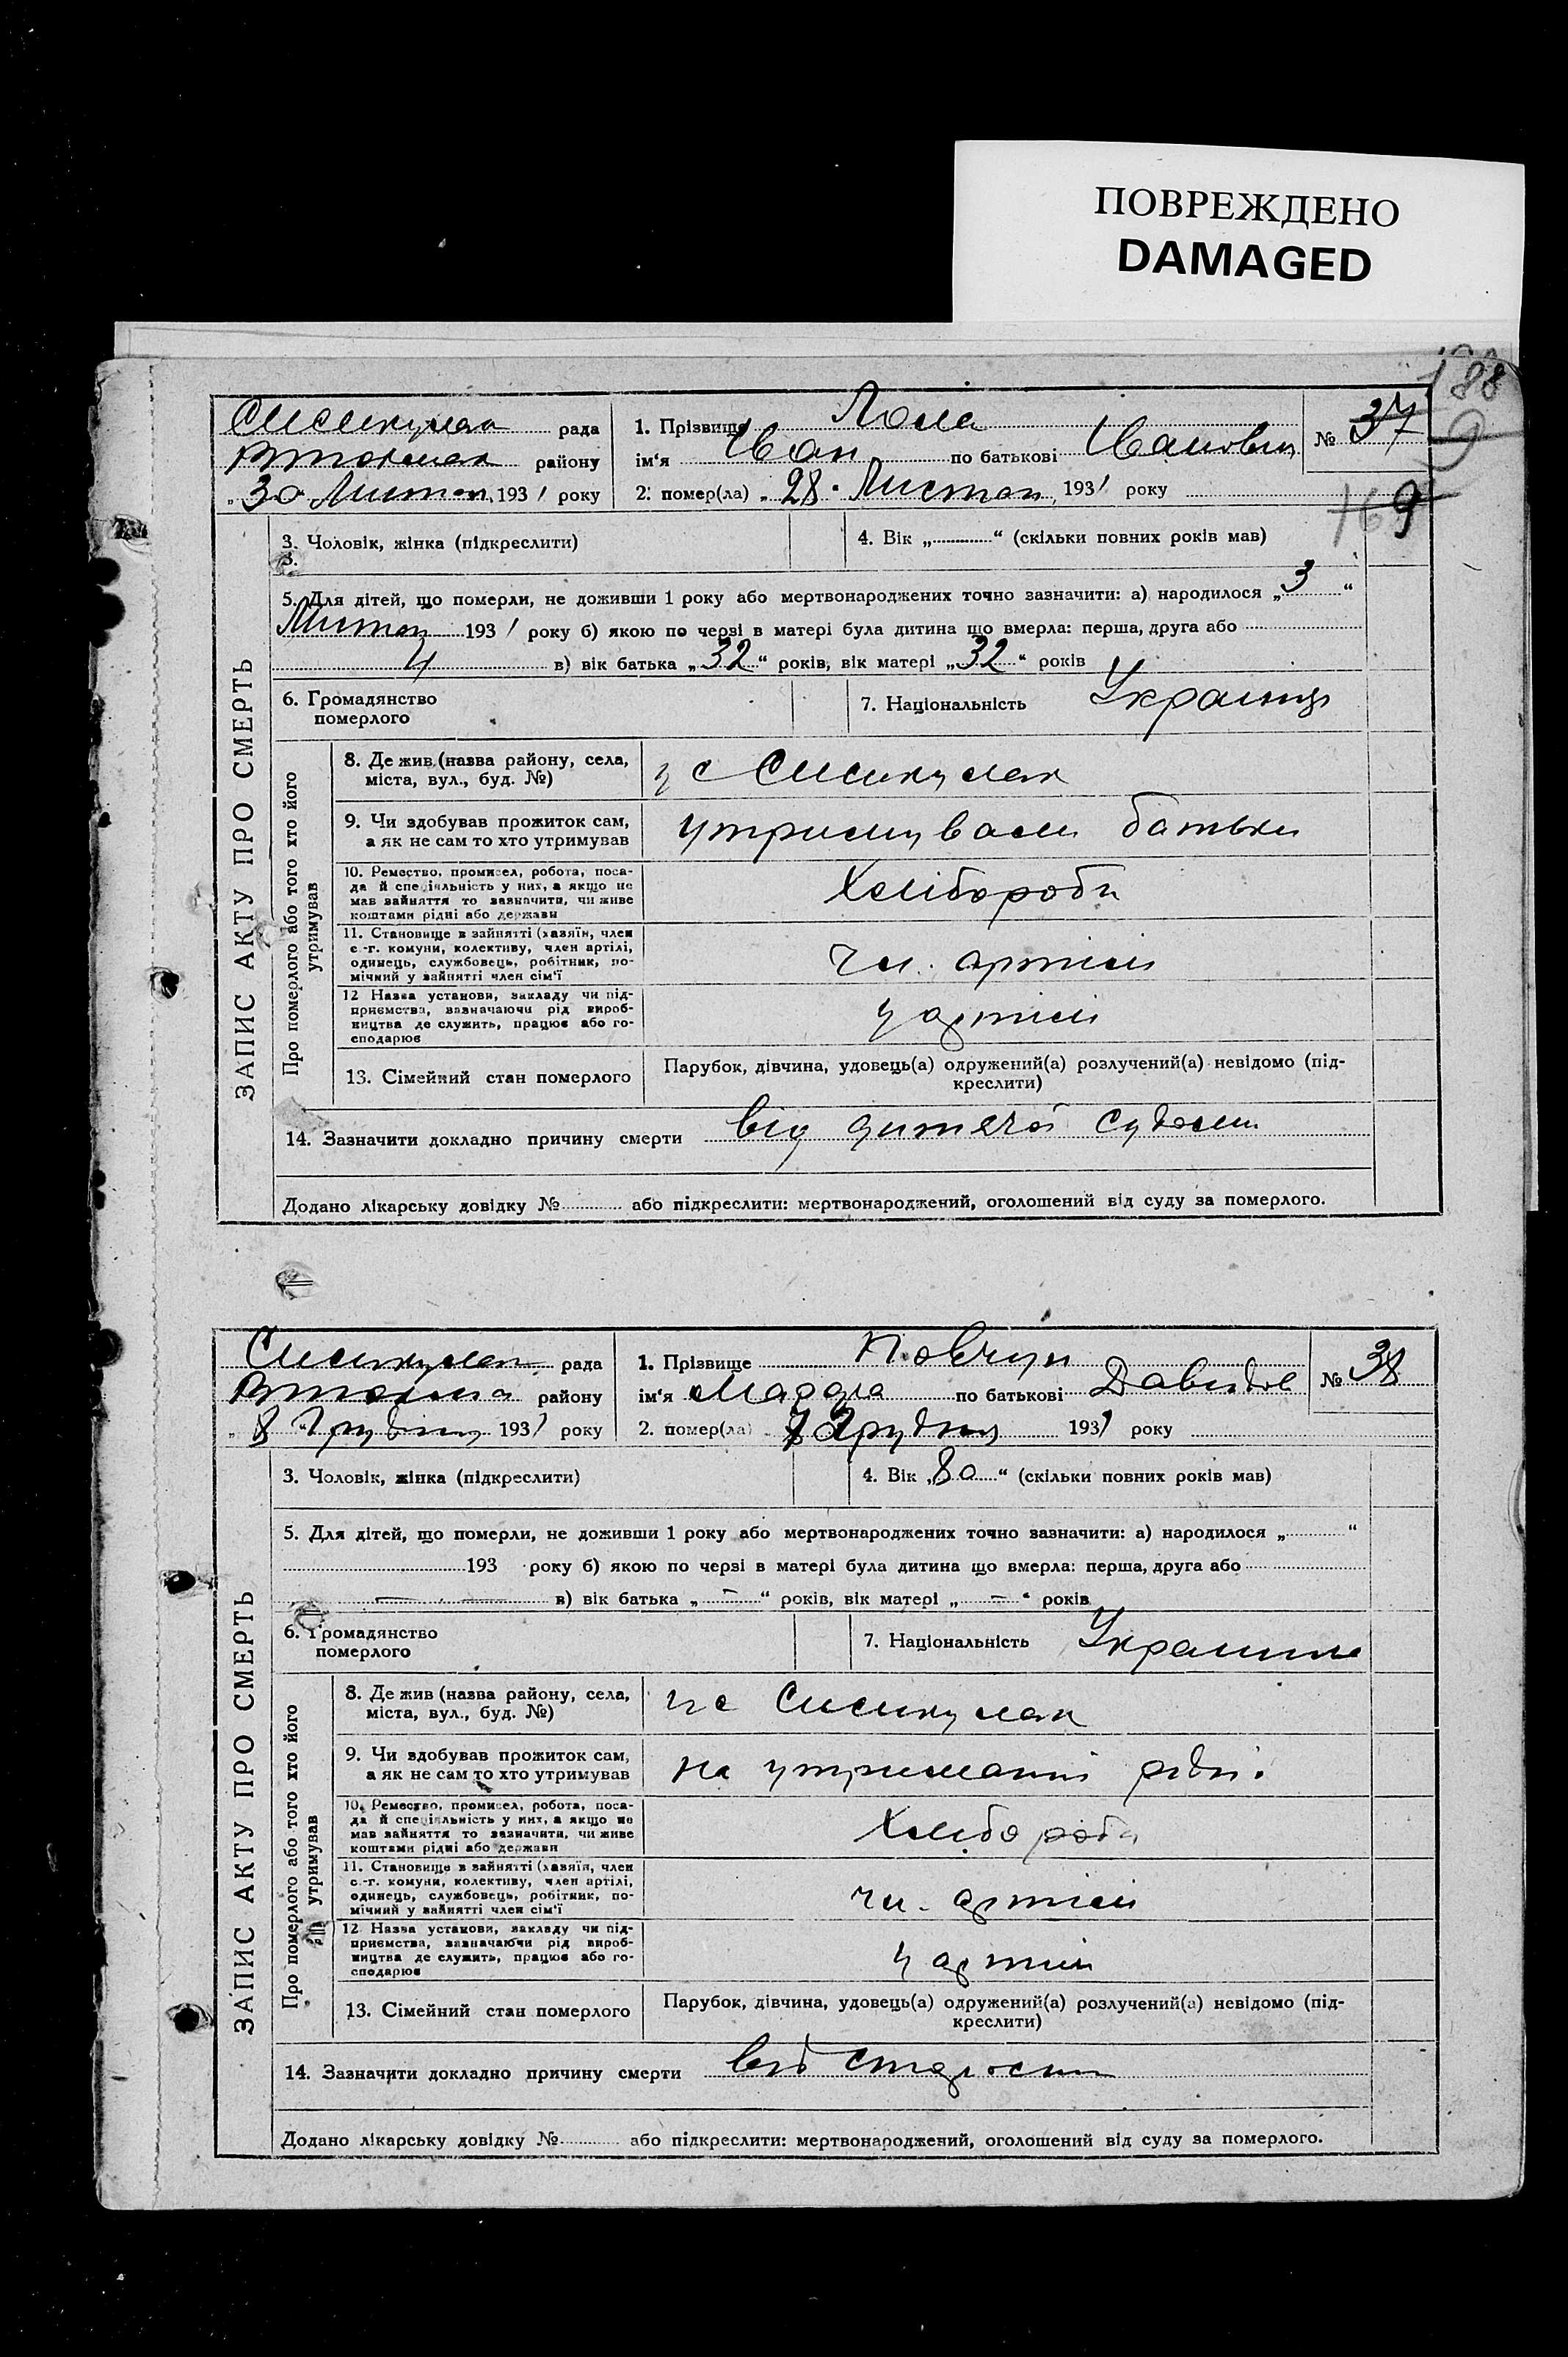 ПОВРЕЖДЕНО
DAMAGED
188
рада
району
„30“ Листоп. 1931 року
1. Прізвище
ім'я Іван по батькові Іванович
2. помер(ла) „28“ Листоп. 1931 року
№ 37
169
ЗАПИС АКТУ ПРО СМЕРТЬ
3. Чоловік, жінка (підкреслити)
4. Вік „ “ (скільки повних років мав)
5. Для дітей, що померли, не доживши 1 року або мертвонароджених точно зазначити: а) народилося „3“
Листоп 1931 року б) якою по черзі в матері була дитина що вмерла: перша, друга або
4 в) вік батька „32“ років, вік матері „32“ років
6. Громадянство
померлого
7. Національність Українць
Про померлого або того хто його
утримував
8. Де жив (назва району, села,
міста, вул., буд. №)
у с
9. Чи здобував прожиток сам,
а як не сам то хто утримував
утримували батьки
10. Ремество, промисел, робота, поса-
да й спеціяльність у них, а якщо не
мав зайняття то зазначити, чи живе
коштами рідні або держави
Хлібороби
11. Становище в зайнятті (хазяїн, член
с.-г. комуни, колективу, член артілі,
одинець, службовець, робітник, по-
мічний у зайнятті член сім'ї
чл. артілі
12 Назва установи, закладу чи під-
приємства, зазначаючи рід вироб-
ництва де служить, працює або го-
сподарює
у артілі
13. Сімейний стан померлого
Парубок, дівчина, удовець(а) одружений(а) розлучений(а) невідомо (під-
креслити)
14. Зазначити докладно причину смерти від дитячої судоми
Додано лікарську довідку № або підкреслити: мертвонароджений, оголошений від суду за померлого.
рада
району
„8“ Грудня 1931 року
1. Прізвище Повчун
ім'я по батькові Давидов
2. помер(ла) 7 Грудня 1931 року
№ 38
ЗАПИС АКТУ ПРО СМЕРТЬ
3. Чоловік, жінка (підкреслити)
4. Вік „80“ (скільки повних років мав)
5. Для дітей, що померли, не доживши 1 року або мертвонароджених точно зазначити: а) народилося „ “
193 року б) якою по черзі в матері була дитина що вмерла: перша, друга або
— — в) вік батька „—“ років, вік матері „—“ років
6. Громадянство
померлого
7. Національність
Про померлого або того хто його
утримував
8. Де жив (назва району, села,
міста, вул., буд. №)
у с
9. Чи здобував прожиток сам,
а як не сам то хто утримував
на утриманні рідні.
10. Ремество, промисел, робота, поса-
да й спеціяльність у них, а якщо не
мав зайняття то зазначити, чи живе
коштами рідні або держави
Хлібороби
11. Становище в зайнятті (хазяїн, член
с.-г. комуни, колективу, член артілі,
одинець, службовець, робітник, по-
мічний у зайнятті член сім'ї
чл. артілі
12 Назва установи, закладу чи під-
приємства, зазначаючи рід вироб-
ництва де служить, працює або го-
сподарює
у артілі
13. Сімейний стан померлого
Парубок, дівчина, удовець(а) одружений(а) розлучений(а) невідомо (під-
креслити)
14. Зазначити докладно причину смерти від старости
Додано лікарську довідку № або підкреслити: мертвонароджений, оголошений від суду за померлого.